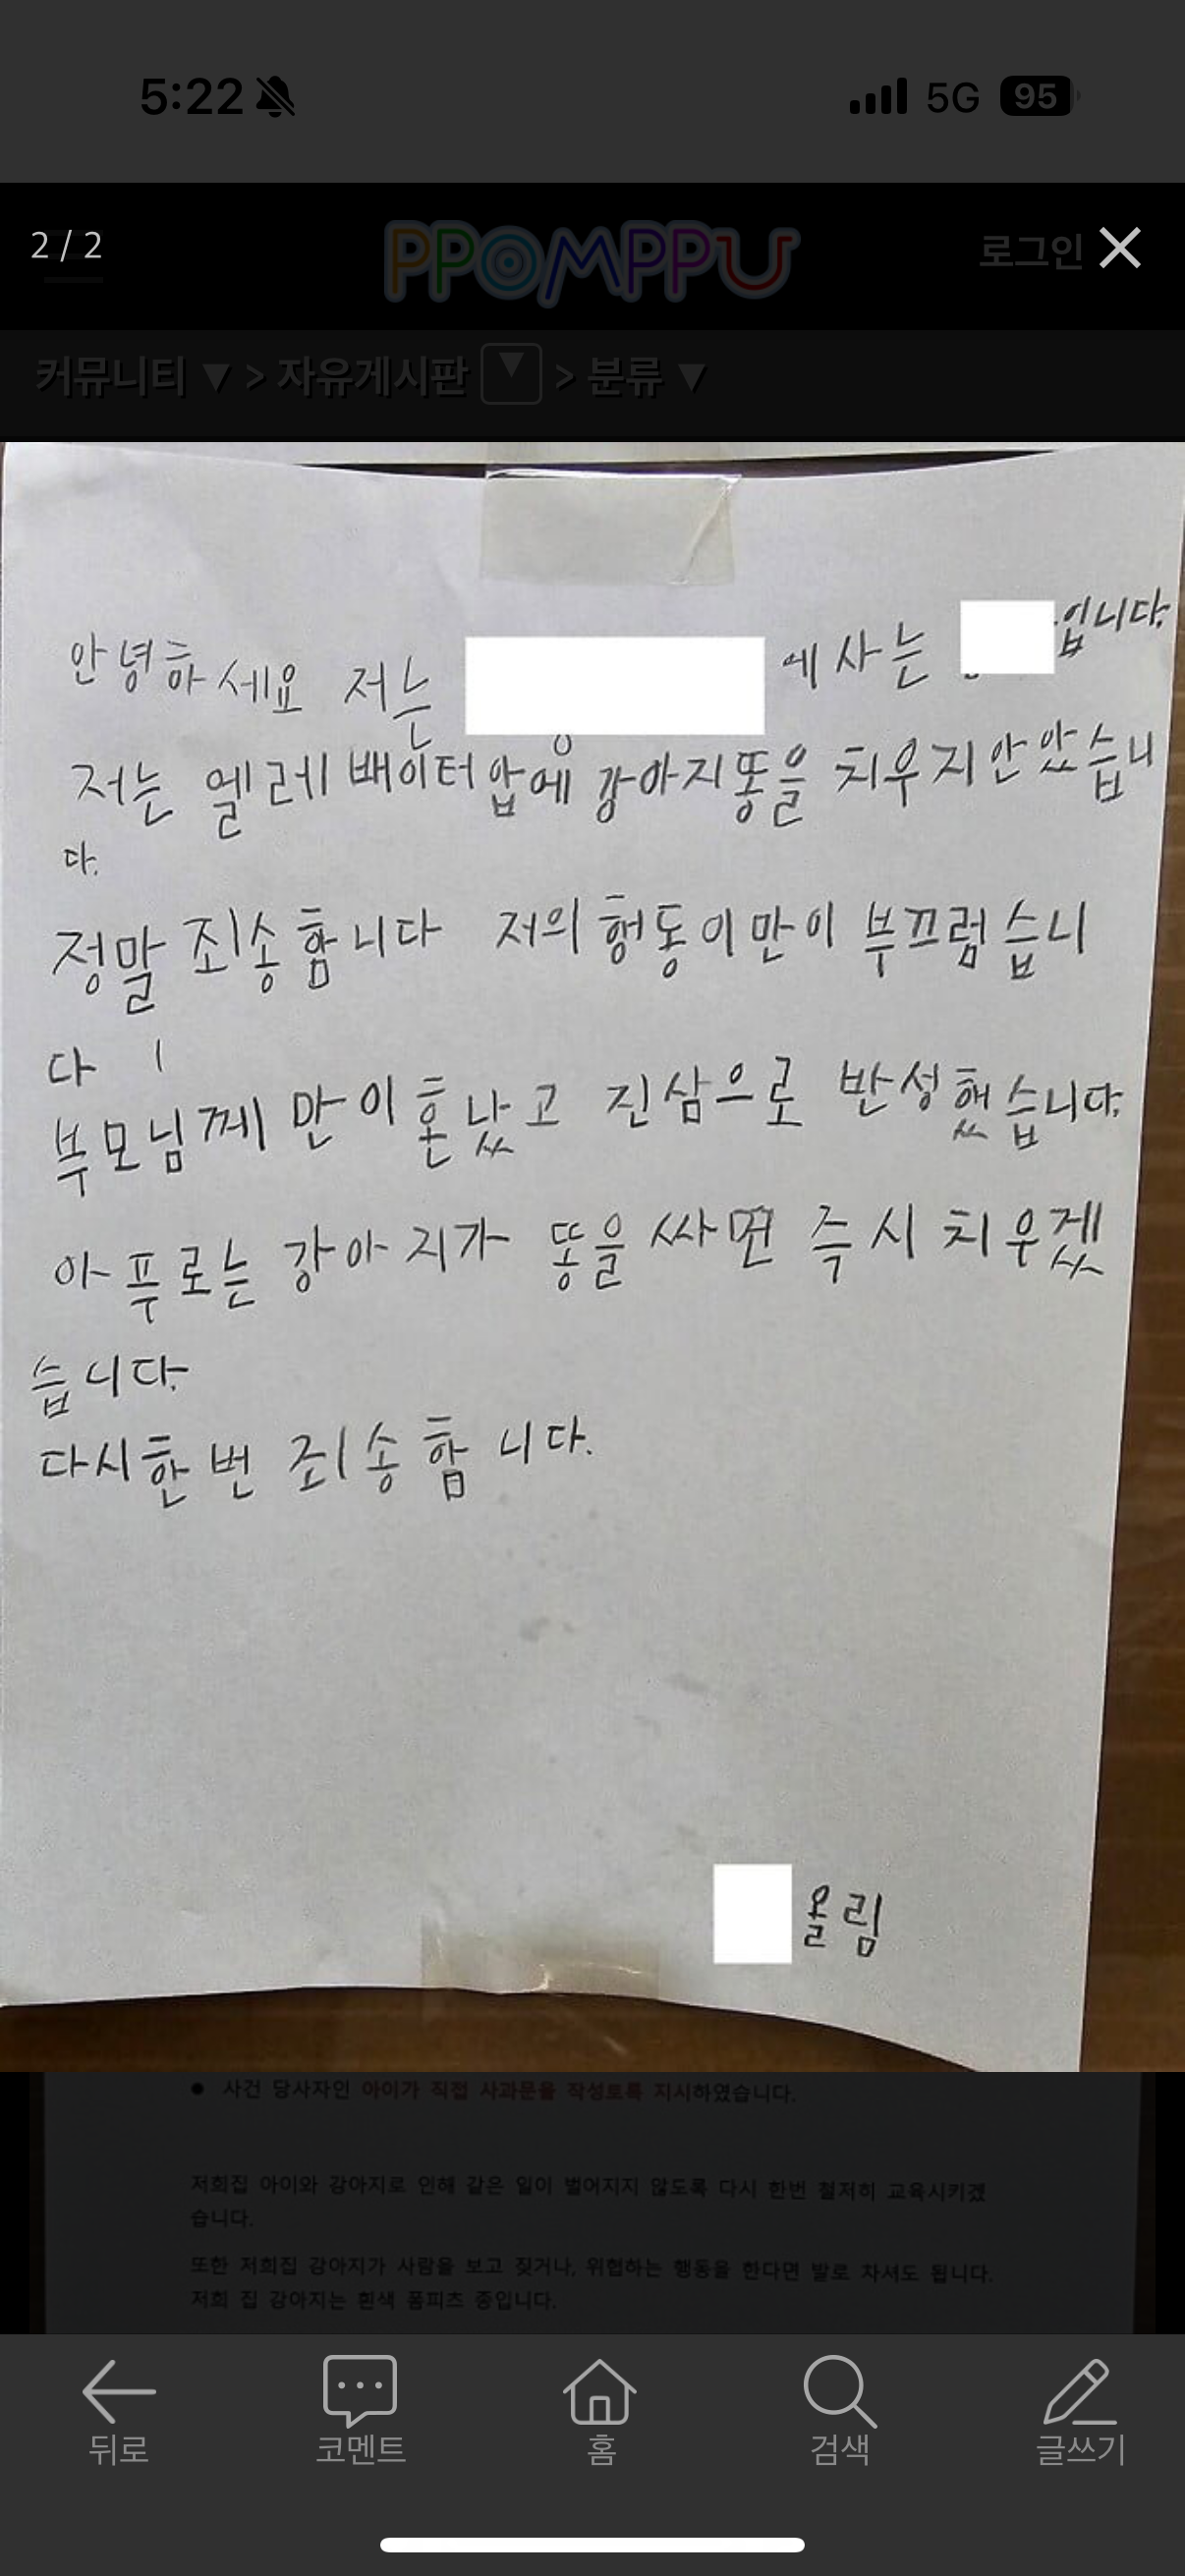 5:22 5G 95
2 / 2 PPOMPPU 로그인
커뮤니티 ▼ > 자유게시판 ▼ > 분류 ▼
안녕하세요 저는 에 사는 입니다.
저는 엘레베이터 압에 강아지똥을 치우지 안았습니
다.
정말 죄송합니다 저의 헹동이 만이 부끄럽습니
다
부모님께 만이 혼났고 진삼으로 반성했습니다.
아푸로는 강아지가 똥을 싸면 즉시 치우겠
습니다.
다시한번 죄송함니다.
올림
● 사건 당사자인 아이가 직접 사과문을 작성토록 지시하였습니다.
저희집 아이와 강아지로 인해 같은 일이 벌어지지 않도록 다시 한번 철저히 교육시키겠
습니다.
또한 저희집 강아지가 사람을 보고 짖거나, 위협하는 행동을 한다면 발로 차셔도 됩니다.
저희 집 강아지는 흰색 폼피츠 종입니다.
뒤로 코멘트 홈 검색 글쓰기